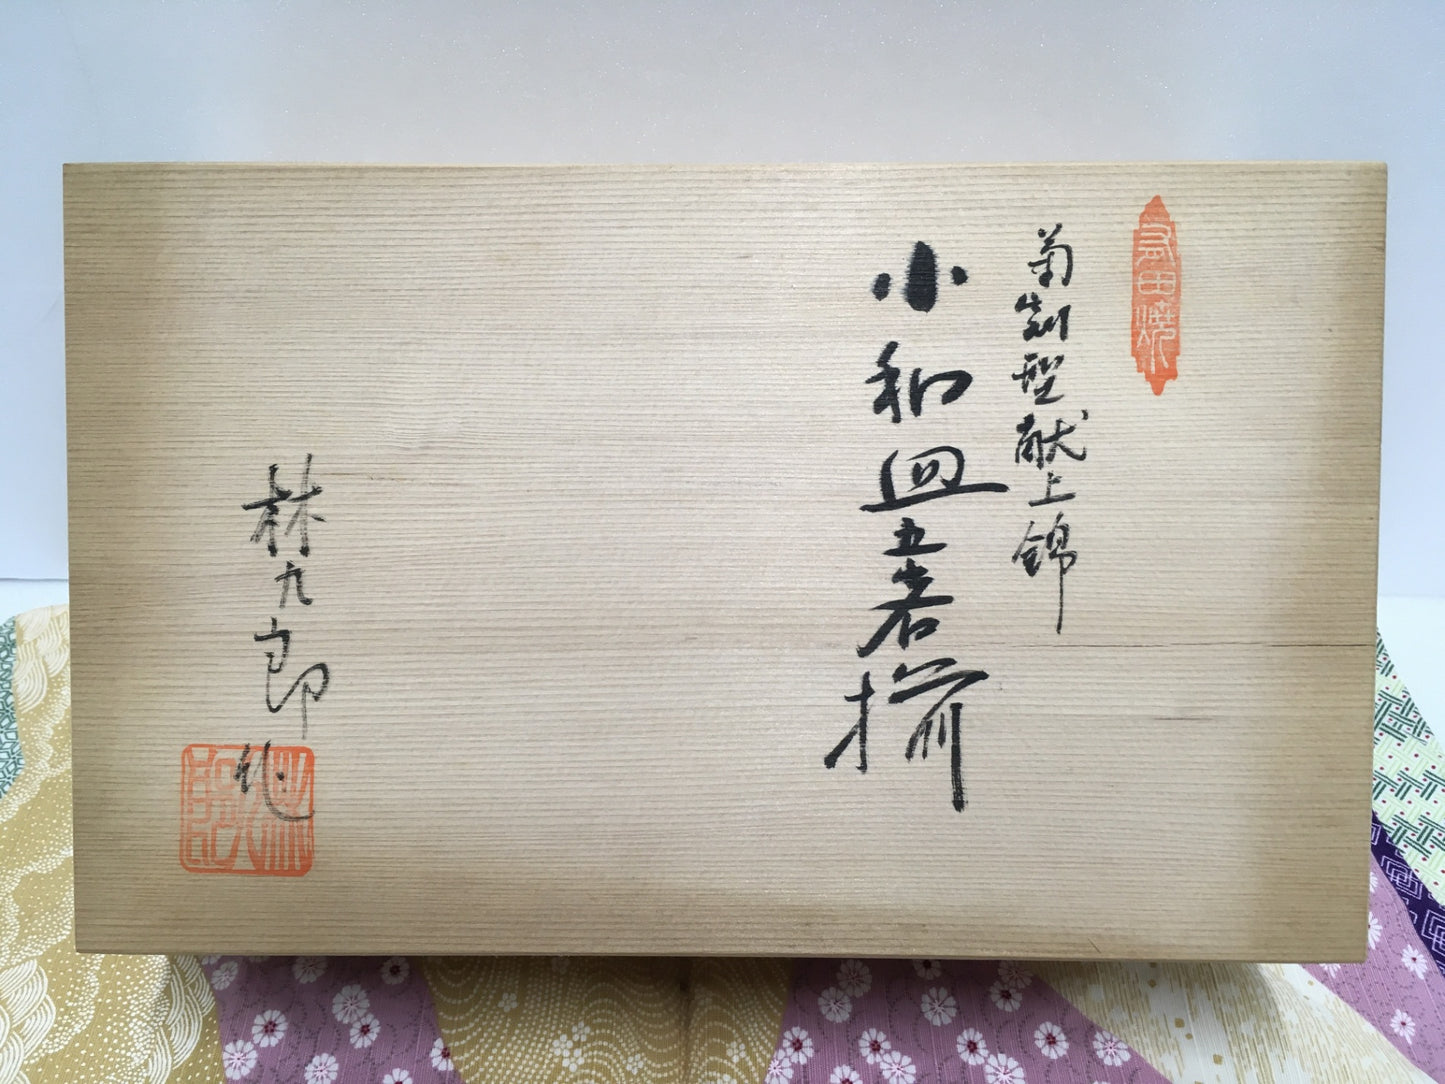 有田焼
菊割型献上錦
小和皿五客揃
林九郎作
林九郎